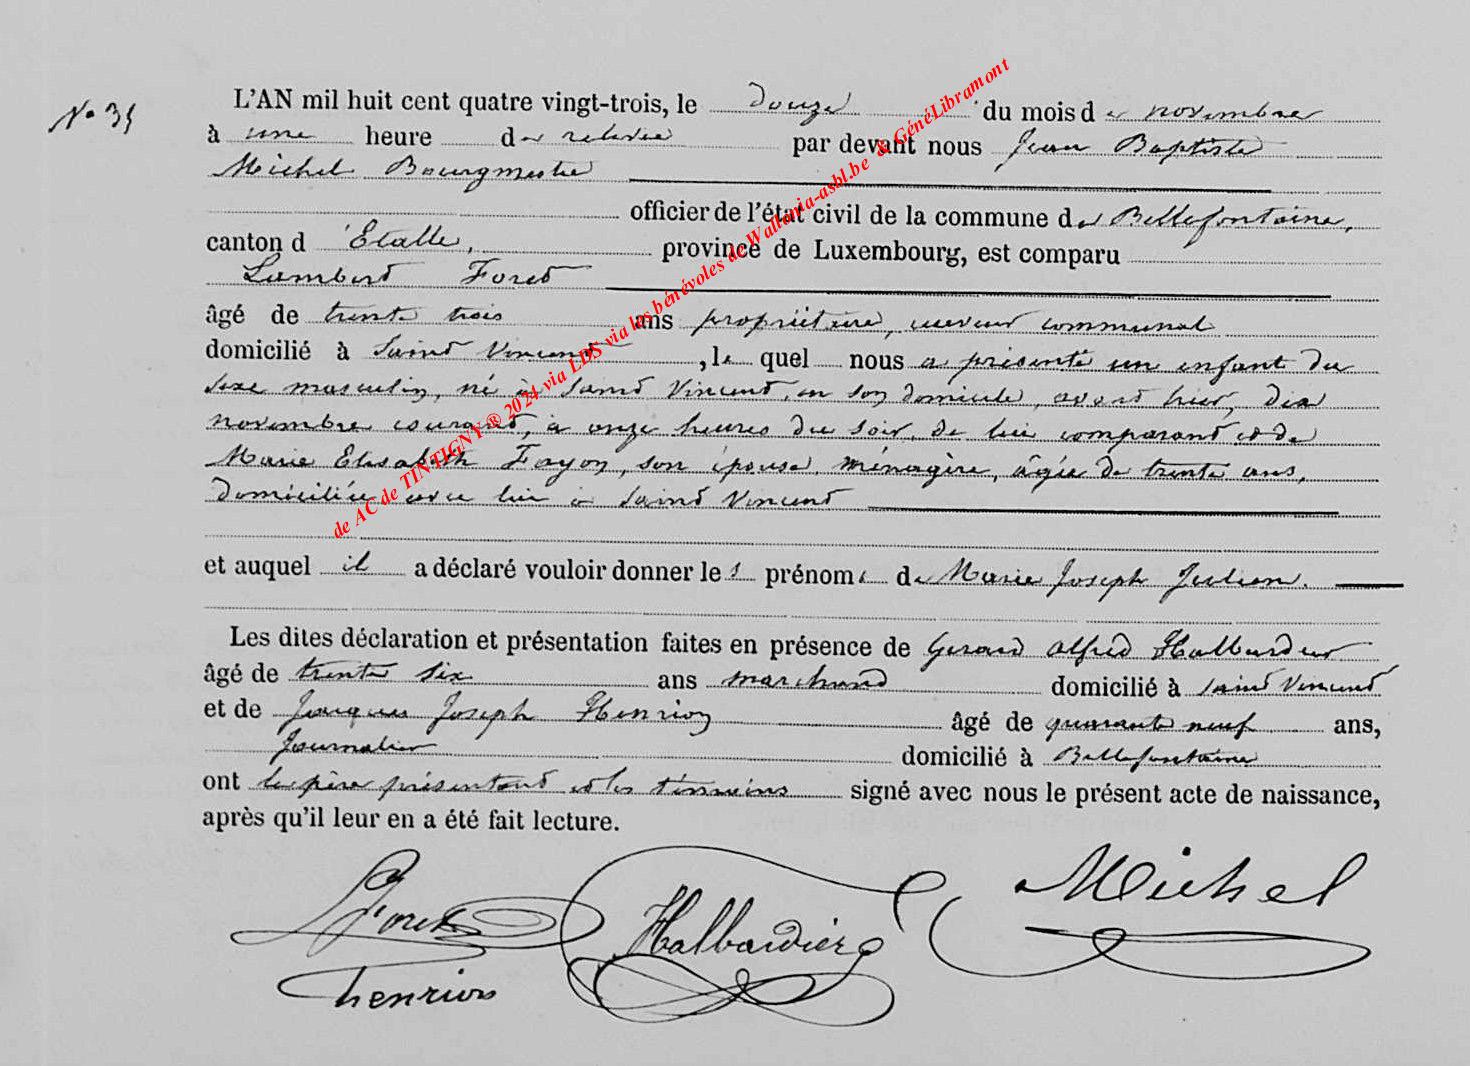 N° 35
L'AN mil huit cent quatre vingt-trois, le douze du mois de novembre
à une heure de relevée par devant nous Jean Baptiste
Michel Bourgmestre
officier de l'état civil de la commune de Bellefontaine,
canton d'Etalle, province de Luxembourg, est comparu
Lambert Foret
âgé de trente trois ans propriétaire, receveur communal
domicilié à Saint Vincent, le quel nous a présenté un enfant du
sexe masculin, né à Saint Vincent, en son domicile, avant hier, dix
novembre courant, à onze heures du soir, de lui comparant et de
Marie Elisabeth Fayon, son épouse, ménagère, âgée de trente ans,
domiciliée avec lui à Saint Vincent
et auquel il a déclaré vouloir donner les prénoms de Marie Joseph Julien.
Les dites déclaration et présentation faites en présence de Gerard Alfred Halbardier
âgé de trente six ans marchand domicilié à Saint Vincent
et de Jacques Joseph Henrion âgé de quarante neuf ans,
Journalier domicilié à Bellefontaine
ont le père présentant et les témoins signé avec nous le présent acte de naissance,
après qu'il leur en a été fait lecture.
L Foret Halbardier Michel
henrion
de AC de TINTIGNY ® 2024 via LDS via les bénévoles de Wallonia-asbl.be & GénéLibramont